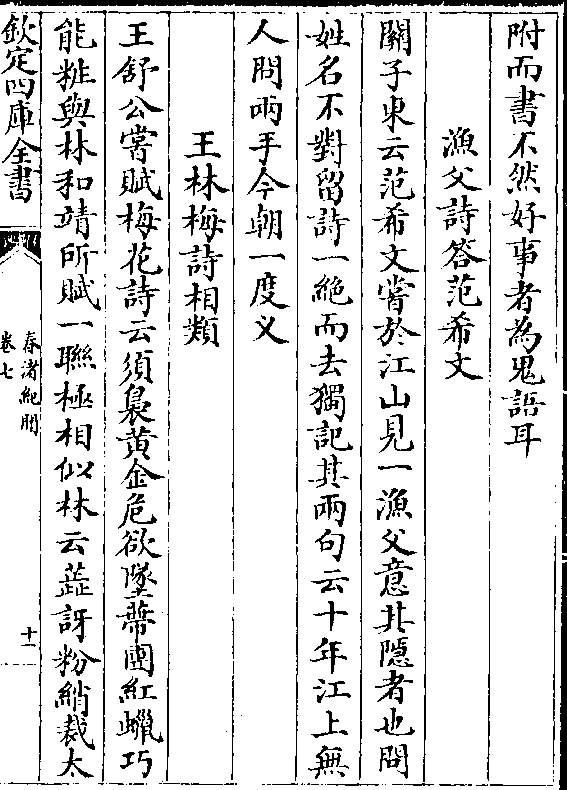 附而書不然好事者為鬼語耳
漁父詩答范希文
關子東云范希文嘗於江山見一漁父意其隱者也問
姓名不對留詩一絶而去獨記其兩句云十年江上無
人問兩手今朝一度义
王林梅詩相類
王舒公嘗賦梅花詩云須裊黄金危欲墜蔕團紅蠟巧
能粧與林和靖所賦一聯極相似林云蘂訝粉綃裁太
欽定四庫全書
春渚紀聞
卷七
十一